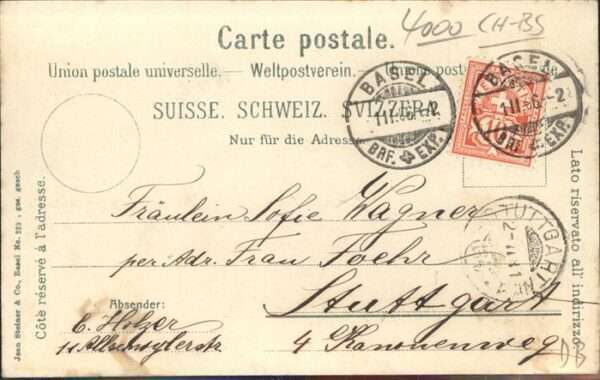 4000 CH-BS
Carte postale.
Union postale universelle. — Weltpostverein. — Unione postale
SUISSE. SCHWEIZ. SVIZZERA.
Nur für die Adresse
BASEL
BRF. EXP.
BASEL
BRF. EXP.
Côte réservé à l'adresse.
Lato riservato all' indirizzo
Jean Steiner & Co., Basel No. 221, ges. gesch
Fräulein Sofie Wagner
per Adr. Frau Foehr
Stuttgart
4 Kanonenweg
STUTTGART
Absender:
E. Holzer
11 Allschwylerstr
DB